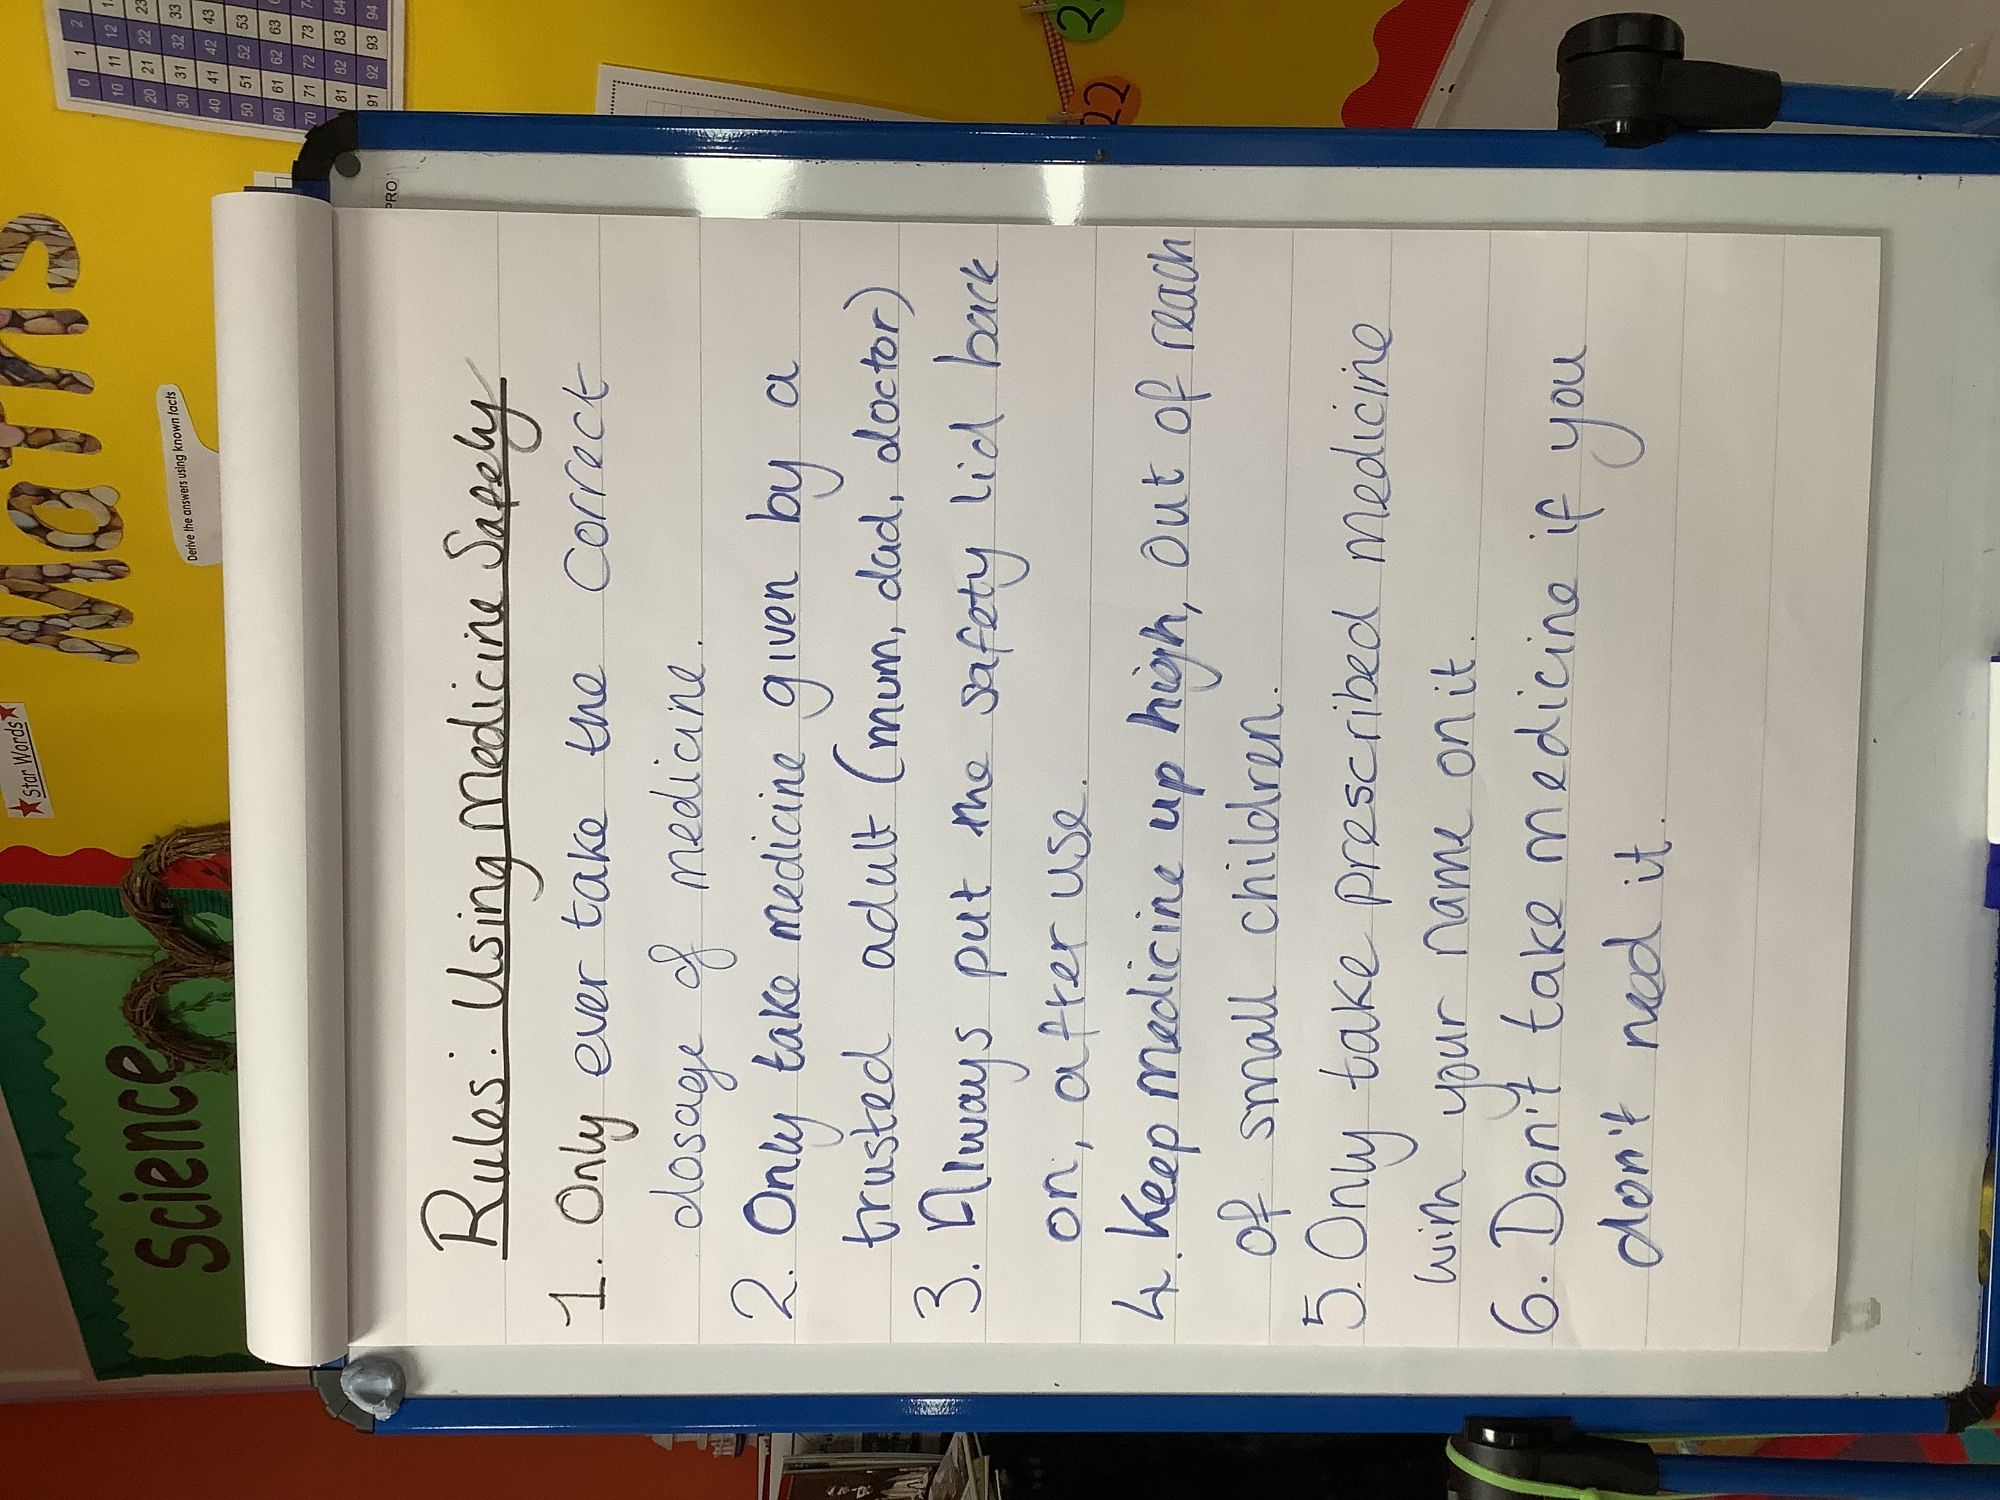 Science
★Star Words★
Maths
Derive the answers using known facts
0 1 2
10 11 12
20 21 22 23
30 31 32 33
40 41 42 43
50 51 52 53
60 61 62 63
70 71 72 73
81 82 83 84
91 92 93 94
22
PRO
Rules: Using Medicine Safely
1. Only ever take the correct
dosage of medicine.
2. Only take medicine given by a
trusted adult (mum, dad, doctor)
3. Always put the safety lid back
on, after use.
4. Keep medicine up high, out of reach
of small children.
5. Only take prescribed medicine
with your name on it.
6. Don't take medicine if you
don't need it.